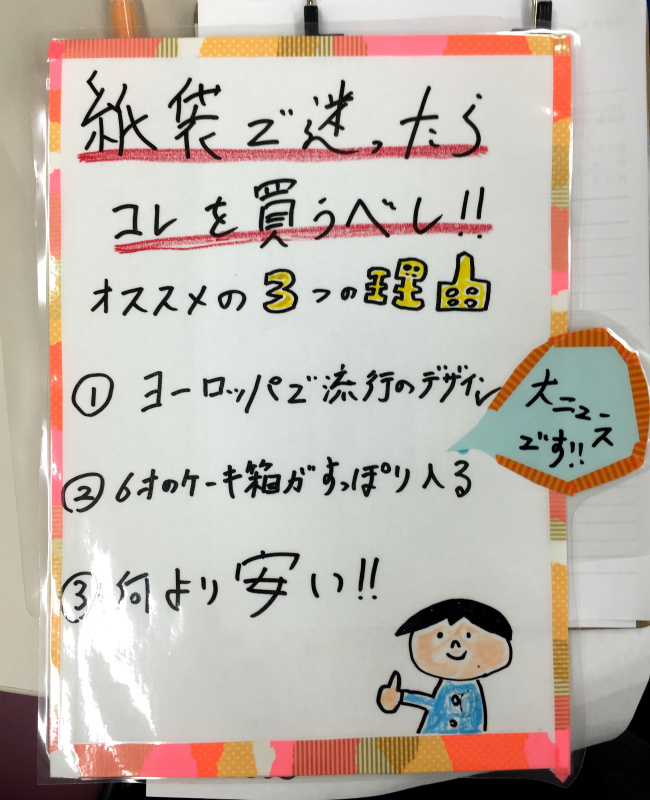 紙袋で迷ったら
コレを買うべし!!
オススメの3つの理由
① ヨーロッパで流行のデザイン
② 6才のケーキ箱がすっぽり入る
③ 何より安い!!
大ニュース
です!!